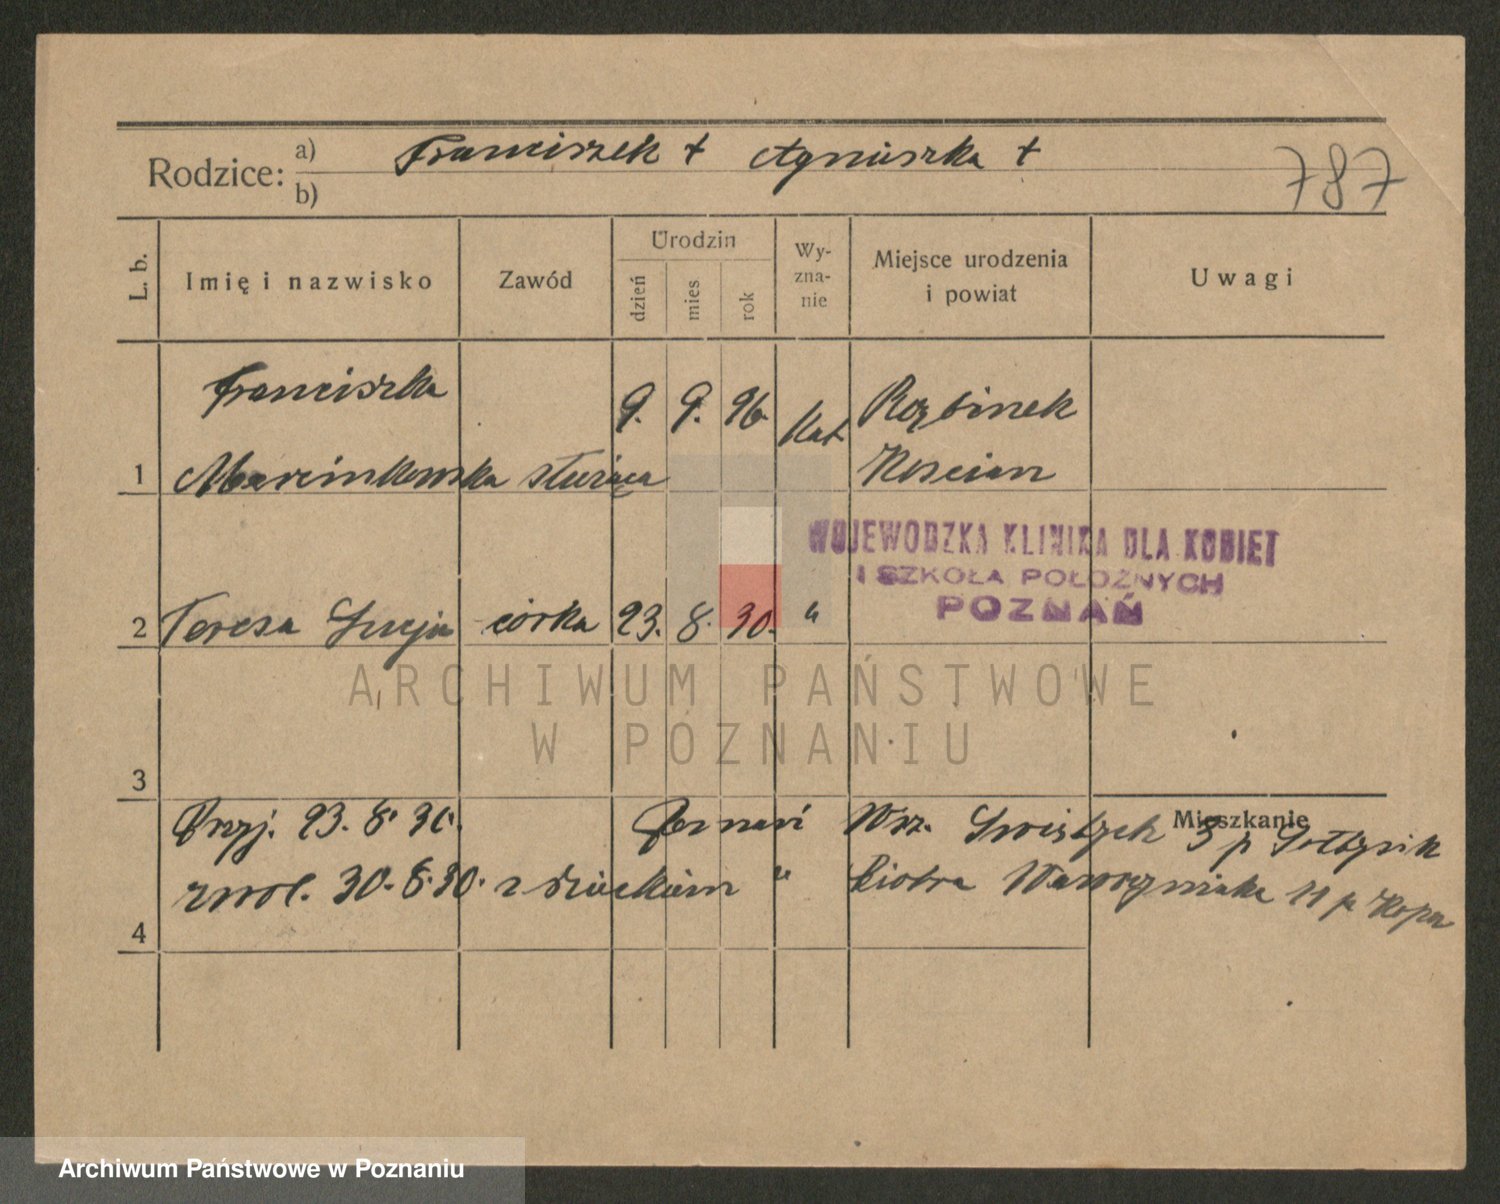 Rodzice: a) Franciszek + Agnieszka +
b)
787
L. b. Imię i nazwisko Zawód Urodzin dzień mies rok Wy-zna-nie Miejsce urodzenia i powiat Uwagi
Franciszka 9. 9. 96. Kat Kościan
1 Marcinkowska służąca
WOJEWODZKA KLINIKA DLA KOBIET
I SZKOŁA POŁOŻNYCH
POZNAŃ
2 Teresa Lucja córka 23. 8. 30. "
ARCHIWUM PAŃSTWOWE
W POZNANIU
3
Mieszkanie
Przyj. 23. 8. 30. Poznań Wrz. 3 p
zwol. 30. 8. 30. z dzieckiem " Piotra Wawrzyniaka 11 p
4
Archiwum Państwowe w Poznaniu